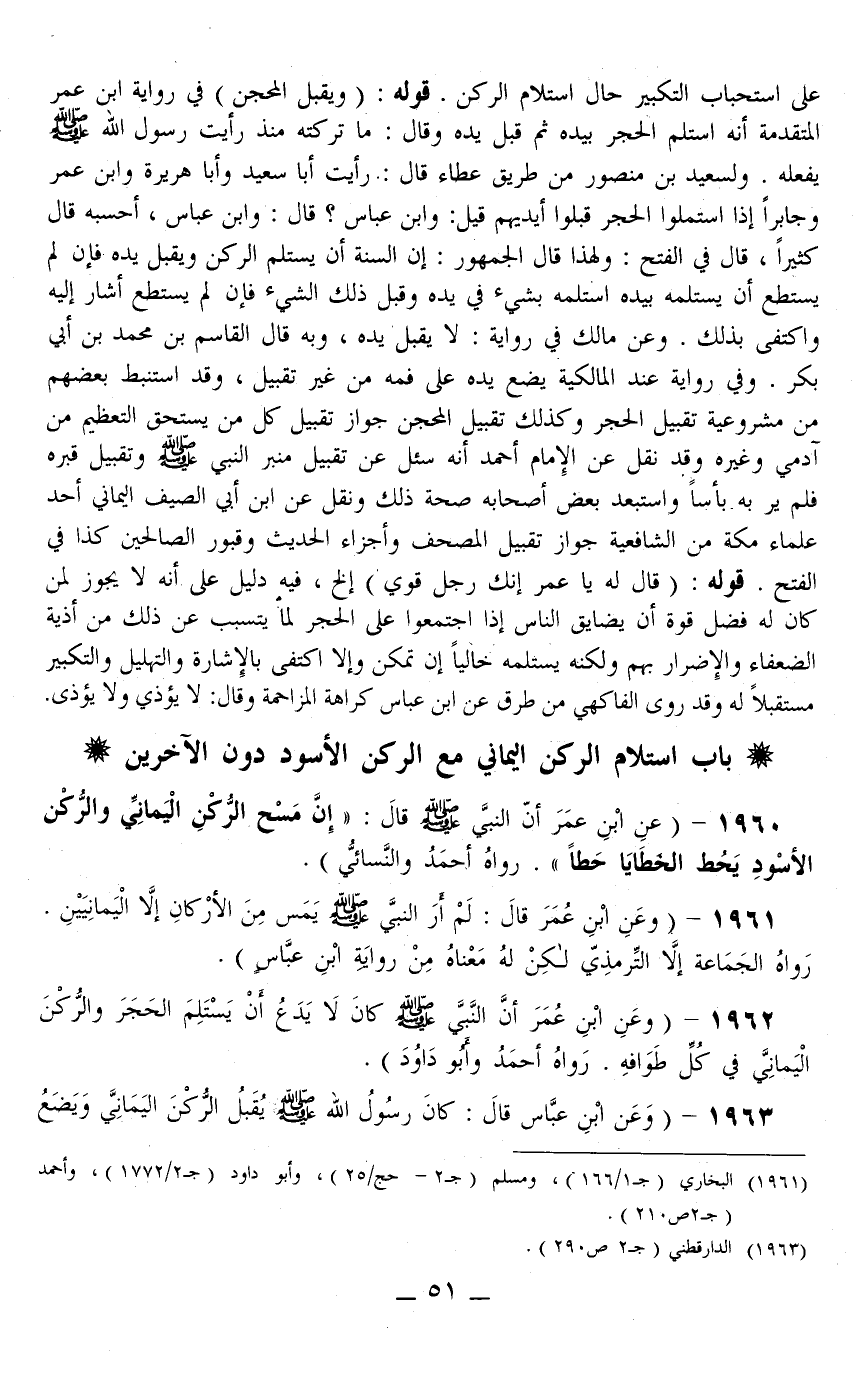 على استحباب التكبير حال استلام الركن . قوله : ( ويقبل المحجن ) في رواية ابن عمر
المتقدمة أنه استلم الحجر بيده ثم قبل يده وقال : ما تركته منذ رأيت رسول الله ﷺ
يفعله . ولسعيد بن منصور من طريق عطاء قال : رأيت أبا سعيد وأبا هريرة وابن عمر
وجابراً إذا استملوا الحجر قبلوا أيديهم قيل: وابن عباس ؟ قال : وابن عباس ، أحسبه قال
كثيراً ، قال في الفتح : ولهذا قال الجمهور : إن السنة أن يستلم الركن ويقبل يده فإن لم
يستطع أن يستلمه بيده استلمه بشيء في يده وقبل ذلك الشيء فإن لم يستطع أشار إليه
واكتفى بذلك . وعن مالك في رواية : لا يقبل يده ، وبه قال القاسم بن محمد بن أبي
بكر . وفي رواية عند المالكية يضع يده على فمه من غير تقبيل ، وقد استنبط بعضهم
من مشروعية تقبيل الحجر وكذلك تقبيل المحجن جواز تقبيل كل من يستحق التعظيم من
آدمي وغيره وقد نقل عن الإمام أحمد أنه سئل عن تقبيل منبر النبي ﷺ وتقبيل قبره
فلم ير به بأساً واستبعد بعض أصحابه صحة ذلك ونقل عن ابن أبي الصيف اليماني أحد
علماء مكة من الشافعية جواز تقبيل المصحف وأجزاء الحديث وقبور الصالحين كذا في
الفتح . قوله : ( قال له يا عمر إنك رجل قوي ) إلخ ، فيه دليل على أنه لا يجوز لمن
كان له فضل قوة أن يضايق الناس إذا اجتمعوا على الحجر لما يتسبب عن ذلك من أذية
الضعفاء والإضرار بهم ولكنه يستلمه خالياً إن تمكن وإلا اكتفى بالإشارة والتهليل والتكبير
مستقبلاً له وقد روى الفاكهي من طرق عن ابن عباس كراهة المزاحمة وقال: لا يؤذي ولا يؤذى.
باب استلام الركن اليماني مع الركن الأسود دون الآخرين
١٩٦٠ – ( عنِ ابْنِ عمَرَ أنّ النبيَّ ﷺ قالَ : « إِنَّ مَسْح الرُّكْنِ الْيَمانِّي والرُّكْن
الأسْودِ يَحُط الخَطَايَا حَطاً » . رواهُ أحمَدُ والنَّسائيُّ ) .
١٩٦١ – ( وعَنِ ابْنِ عُمَرَ قالَ : لَمْ أَرَ النبيَّ ﷺ يَمَس مِنَ الأرْكانِ إلَّا الْيَمانِيَيْنِ .
رَواهُ الجَمَاعة إلَّا التِّرمذِيّ لكِنْ لهُ مَعْناهُ مِنْ روايَةِ ابْنِ عبَّاسٍ ) .
١٩٦٢ – ( وعَنِ ابْنِ عُمَرَ أنَّ النَّبيَّ ﷺ كانَ لَا يَدَعُ أَنْ يَسْتَلِمَ الحَجَرَ والرُّكْنَ
الْيَمانِيَّ في كُلِّ طَوَافهِ . رَواهُ أحمَدُ وأَبُو دَاوُدَ ) .
١٩٦٣ – ( وَعَن ابْنِ عبَّاس قالَ : كانَ رسُولُ الله ﷺ يُقَبلُ الرَّكْنَ اليَمَانيَّ وَيَضَعُ
(١٩٦١) البخاري ( جـ١/١٦٦ ) ، ومسلم ( جـ٢ – حج/٢٥ ) ، وأبو داود ( جـ٢/١٧٧٢ ) ، وأحمد
( جـ٢ص٢١٠ ) .
(١٩٦٣) الدارقطني ( جـ٢ ص٢٩٠ ) .
ـ ٥١ ـ